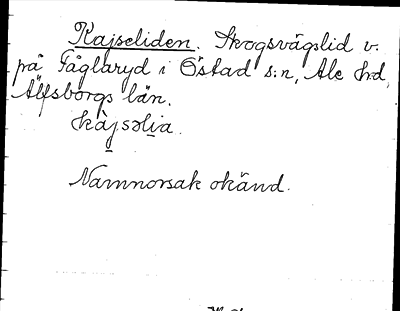 Kajseliden. Skogsvägslid v.
på Fåglaryd i Östad s:n, Ale hd,
Älfsborgs län.
kàjsəlia.
Namnorsak okänd.